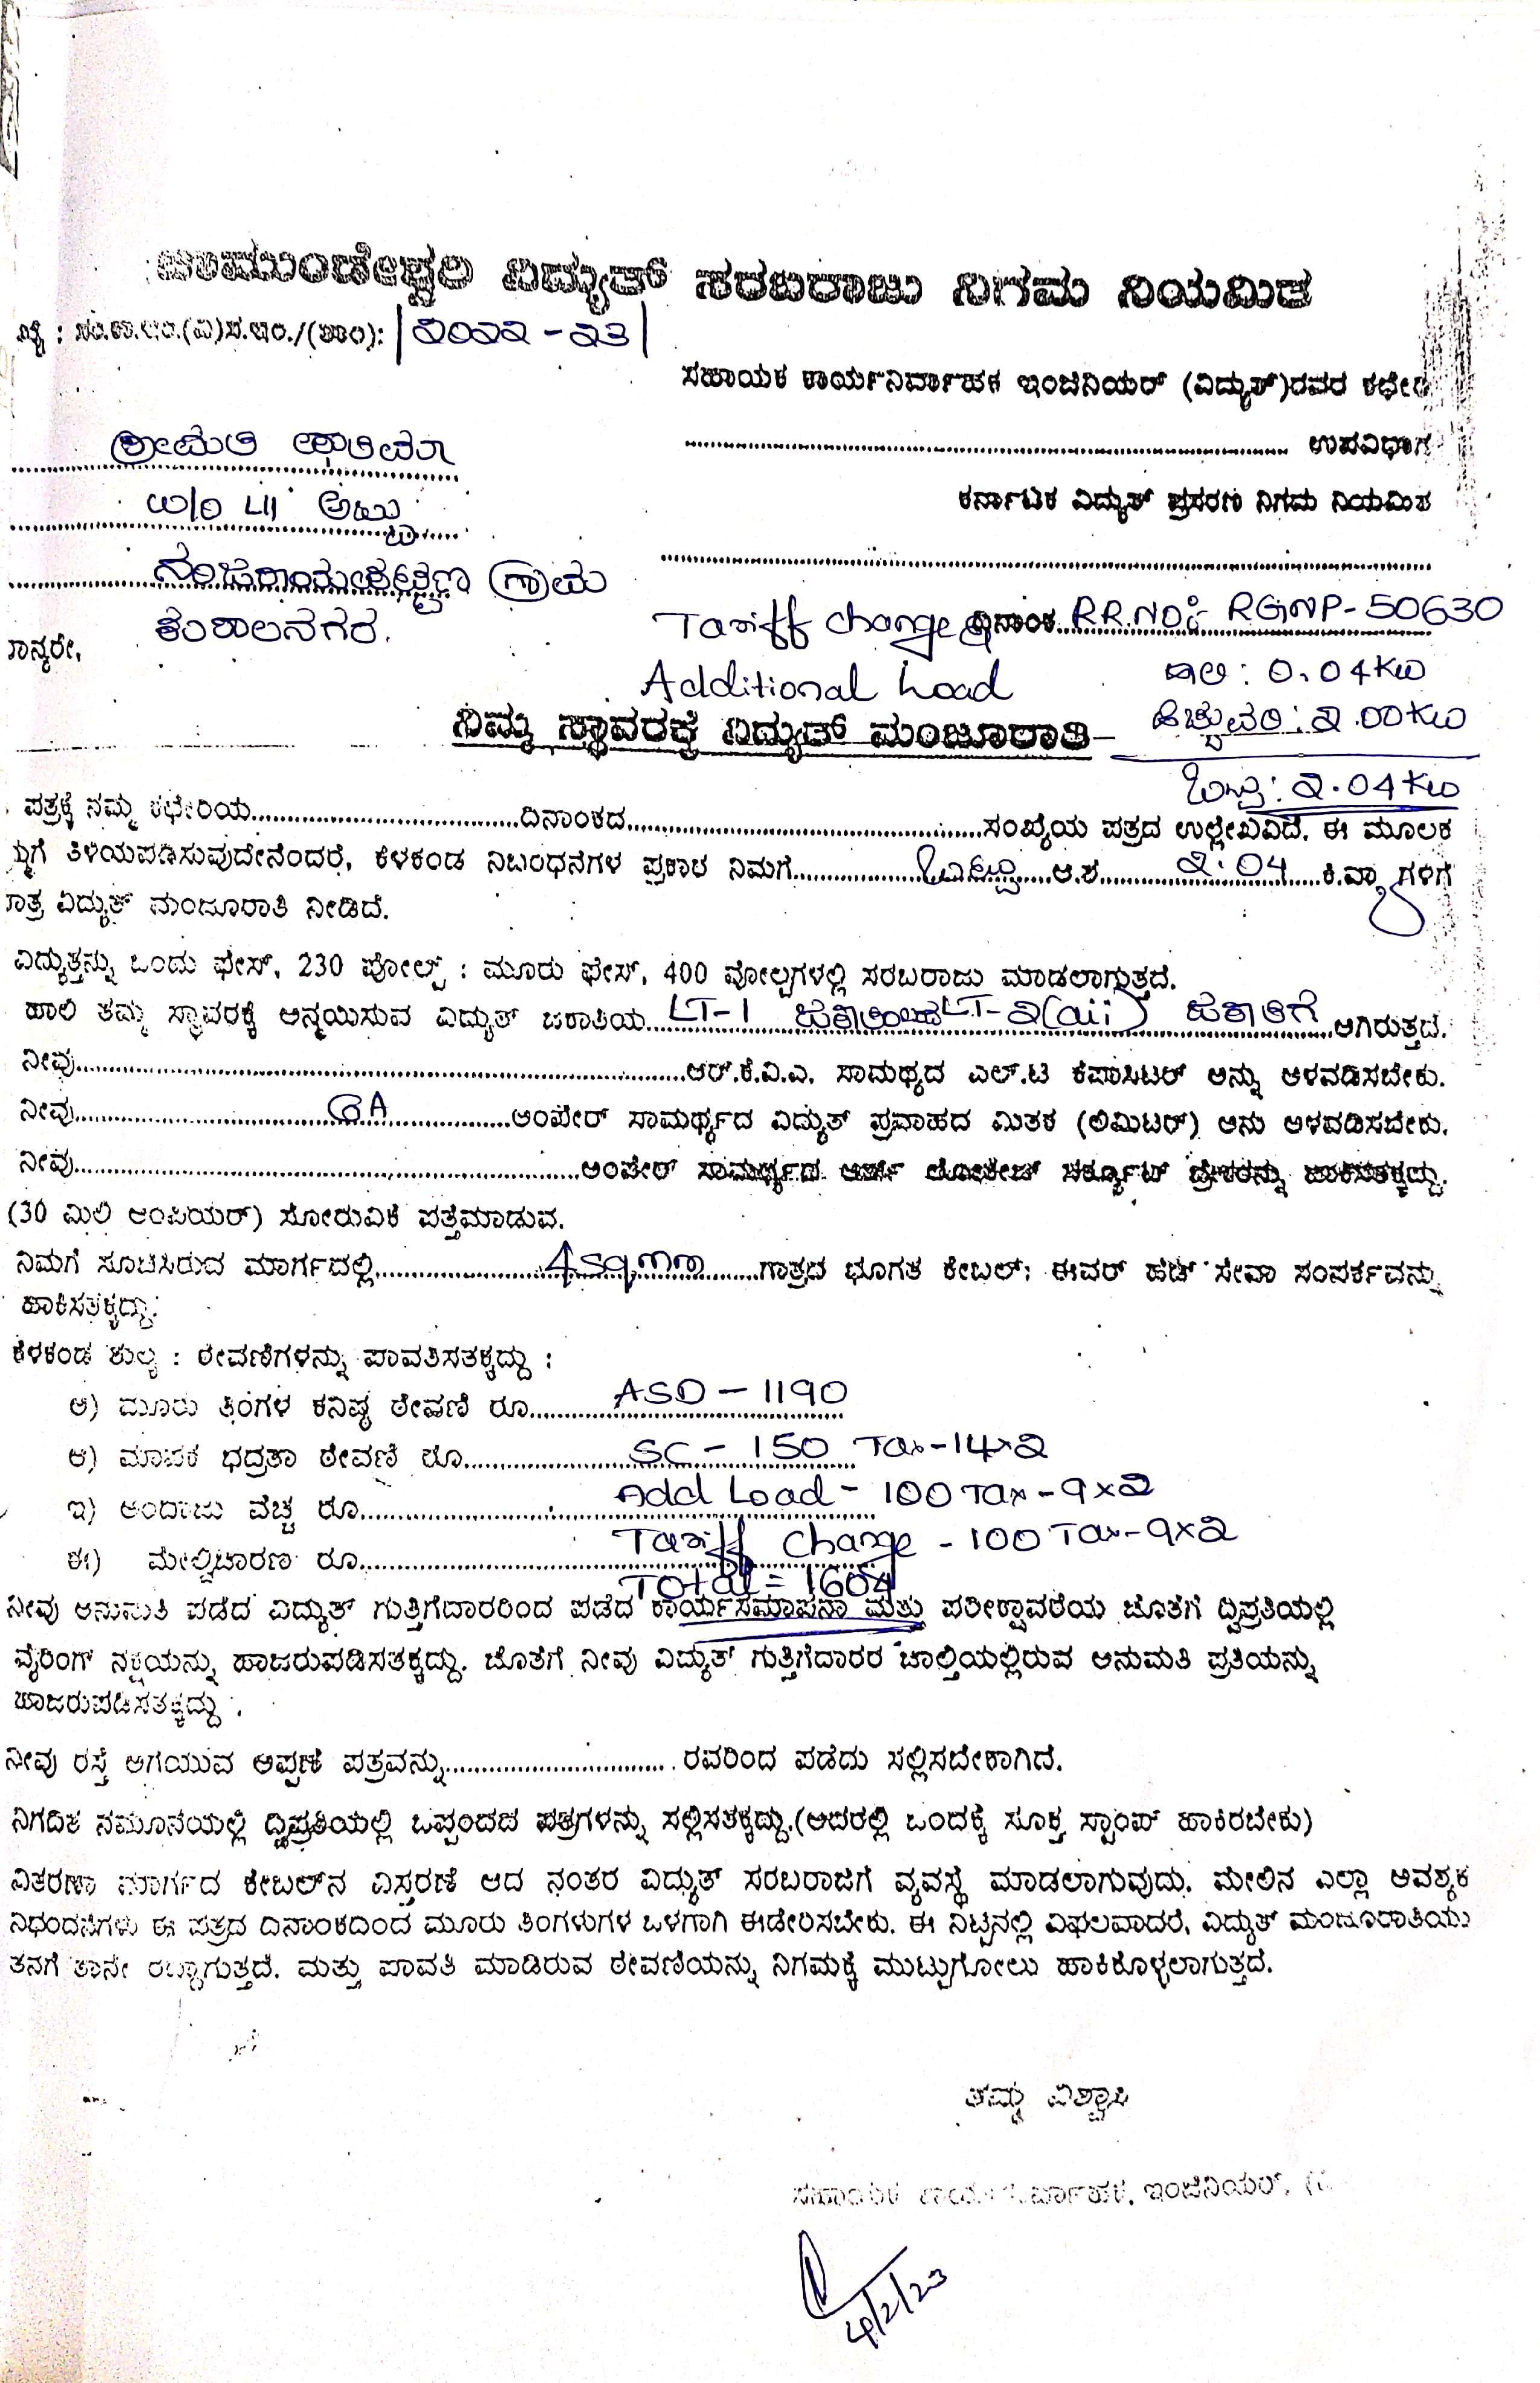 ಚಾಮುಂಡೇಶ್ವರಿ ವಿದ್ಯುತ್ ಸರಬರಾಜು ನಿಗಮ ನಿಯಮಿತ
: ಸ.ಕಾ.ಇಂ.(ವಿ)ಸ.ಇಂ./(ಕಾಂ): |2022-23|
ಸಹಾಯಕ ಕಾರ್ಯನಿರ್ವಾಹಕ ಇಂಜಿನಿಯರ್ (ವಿದ್ಯುತ್)ರವರ ಕಛೇರಿ
ಶ್ರೀಮತಿ ಫಾತಿಮಾ
ಉಪವಿಭಾಗ
W/o Lt ಅಬ್ಬು
ಕರ್ನಾಟಕ ವಿದ್ಯುತ್ ಪ್ರಸರಣ ನಿಗಮ ನಿಯಮಿತ
ನಂಜರಾಯಪಟ್ಟಣ ಗ್ರಾಮ
ಕುಶಾಲನಗರ.
Tariff change & ದಿನಾಂಕ RR.NO:- RGNP-50630
ಮಾನ್ಯರೇ,
Additional Load
ಹಾಲಿ : 0.04KW
ಹೆಚ್ಚುವರಿ : 2.00KW
ನಿಮ್ಮ ಸ್ಥಾವರಕ್ಕೆ ವಿದ್ಯುತ್ ಮಂಜೂರಾತಿ
ಒಟ್ಟು : 2.04KW
ಪತ್ರಕ್ಕೆ ನಮ್ಮ ಕಛೇರಿಯ..........ದಿನಾಂಕದ..........ಸಂಖ್ಯೆಯ ಪತ್ರದ ಉಲ್ಲೇಖವಿದೆ. ಈ ಮೂಲಕ
ನಿಮಗೆ ತಿಳಿಯಪಡಿಸುವುದೇನೆಂದರೆ, ಕೆಳಕಂಡ ನಿಬಂಧನೆಗಳ ಪ್ರಕಾರ ನಿಮಗೆ..........ಒಟ್ಟು.....ಆ.ಶ..........2.04.....ಕಿ.ವ್ಯಾ ಗಳಿಗೆ
ಮಾತ್ರ ವಿದ್ಯುತ್ ಮಂಜೂರಾತಿ ನೀಡಿದೆ.
ವಿದ್ಯುತ್ತನ್ನು ಒಂದು ಫೇಸ್, 230 ವೋಲ್ಟ್ : ಮೂರು ಫೇಸ್, 400 ವೋಲ್ಟಗಳಲ್ಲಿ ಸರಬರಾಜು ಮಾಡಲಾಗುತ್ತದೆ.
ಹಾಲಿ ತಮ್ಮ ಸ್ಥಾವರಕ್ಕೆ ಅನ್ವಯಿಸುವ ವಿದ್ಯುತ್ ಜಕಾತಿಯ LT-1 ಜಕಾತಿಯಿಂದ LT-2(aii) ಜಕಾತಿಗೆ ಆಗಿರುತ್ತದೆ.
ನೀವು..........ಆರ್.ಕೆ.ವಿ.ಎ. ಸಾಮಥ್ಯದ ಎಲ್.ಟಿ ಕೆಪಾಸಿಟರ್ ಅನ್ನು ಅಳವಡಿಸಬೇಕು.
ನೀವು..........6A..........ಅಂಪೇರ್ ಸಾಮರ್ಥ್ಯದ ವಿದ್ಯುತ್ ಪ್ರವಾಹದ ಮಿತಕ (ಲಿಮಿಟರ್) ಅನು ಅಳವಡಿಸಬೇಕು.
ನೀವು..........ಅಂಪೇರ್ ಸಾಮರ್ಥ್ಯದ ಅರ್ತ್ ಲೀಕೇಜ್ ಸರ್ಕ್ಯೂಟ್ ಬ್ರೇಕರನ್ನು ಹಾಕಿಸತಕ್ಕದ್ದು.
(30 ಮಿಲಿ ಆಂಪಿಯರ್) ಸೋರುವಿಕೆ ಪತ್ತೆಮಾಡುವ.
ನಿಮಗೆ ಸೂಚಿಸಿರುವ ಮಾರ್ಗದಲ್ಲಿ..........4sqmm.....ಗಾತ್ರದ ಭೂಗತ ಕೇಬಲ್: ಈವರ್ ಹೆಡ್ ಸೇವಾ ಸಂಪರ್ಕವನ್ನು
ಹಾಕಿಸತಕ್ಕದ್ದು.
ಕೆಳಕಂಡ ಶುಲ್ಕ : ಠೇವಣಿಗಳನ್ನು ಪಾವತಿಸತಕ್ಕದ್ದು :
ಅ) ಮೂರು ತಿಂಗಳ ಕನಿಷ್ಠ ಠೇವಣಿ ರೂ.....ASD - 1190
ಆ) ಮಾಪಕ ಭದ್ರತಾ ಠೇವಣಿ ರೂ.....SC - 150 Tax-14x2
ಇ) ಅಂದಾಜು ವೆಚ್ಚ ರೂ.....Add Load - 100 Tax-9x2
ಈ) ಮೇಲ್ವಿಚಾರಣ ರೂ.....Tariff Change - 100 Tax-9x2
Total = 1604
ನೀವು ಅನುಮತಿ ಪಡೆದ ವಿದ್ಯುತ್ ಗುತ್ತಿಗೆದಾರರಿಂದ ಪಡೆದ ಕಾರ್ಯಸಮಾಪನಾ ಮತ್ತು ಪರೀಕ್ಷಾವರೆಯ ಜೊತೆಗೆ ದ್ವಿಪ್ರತಿಯಲ್ಲಿ
ವೈರಿಂಗ್ ನಕ್ಷೆಯನ್ನು ಹಾಜರುಪಡಿಸತಕ್ಕದ್ದು. ಜೊತೆಗೆ ನೀವು ವಿದ್ಯುತ್ ಗುತ್ತಿಗೆದಾರರ ಚಾಲ್ತಿಯಲ್ಲಿರುವ ಅನುಮತಿ ಪ್ರತಿಯನ್ನು
ಹಾಜರುಪಡಿಸತಕ್ಕದ್ದು .
ನೀವು ರಸ್ತೆ ಅಗೆಯುವ ಅಪ್ಪಣೆ ಪತ್ರವನ್ನು..........ರವರಿಂದ ಪಡೆದು ಸಲ್ಲಿಸಬೇಕಾಗಿದೆ.
ನಿಗದಿತ ನಮೂನೆಯಲ್ಲಿ ದ್ವಿಪ್ರತಿಯಲ್ಲಿ ಒಪ್ಪಂದದ ಪತ್ರಗಳನ್ನು ಸಲ್ಲಿಸತಕ್ಕದ್ದು.(ಅದರಲ್ಲಿ ಒಂದಕ್ಕೆ ಸೂಕ್ತ ಸ್ಟಾಂಪ್ ಹಾಕಿರಬೇಕು)
ವಿತರಣಾ ಮಾರ್ಗದ ಕೇಬಲ್‌ನ ವಿಸ್ತರಣೆ ಆದ ನಂತರ ವಿದ್ಯುತ್ ಸರಬರಾಜಿಗೆ ವ್ಯವಸ್ಥೆ ಮಾಡಲಾಗುವುದು. ಮೇಲಿನ ಎಲ್ಲಾ ಅವಶ್ಯಕ
ನಿಭಂದನೆಗಳು ಈ ಪತ್ರದ ದಿನಾಂಕದಿಂದ ಮೂರು ತಿಂಗಳುಗಳ ಒಳಗಾಗಿ ಈಡೇರಿಸಬೇಕು. ಈ ನಿಟ್ಟನಲ್ಲಿ ವಿಫಲವಾದರೆ, ವಿದ್ಯುತ್ ಮಂಜೂರಾತಿಯು
ತನಗೆ ತಾನೇ ರದ್ದಾಗುತ್ತದೆ. ಮತ್ತು ಪಾವತಿ ಮಾಡಿರುವ ಠೇವಣಿಯನ್ನು ನಿಗಮಕ್ಕೆ ಮುಟ್ಟುಗೋಲು ಹಾಕಿಕೊಳ್ಳಲಾಗುತ್ತದೆ.
ತಮ್ಮ ವಿಶ್ವಾಸಿ
ಸಹಾಯಕ ಕಾರ್ಯನಿರ್ವಾಹಕ, ಇಂಜಿನಿಯರ್,
4/2/23